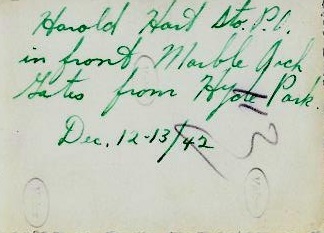 Harold Hart Sto. P.O.
in front Marble Arch
Gates from Hyde Park.
Dec. 12-13/42